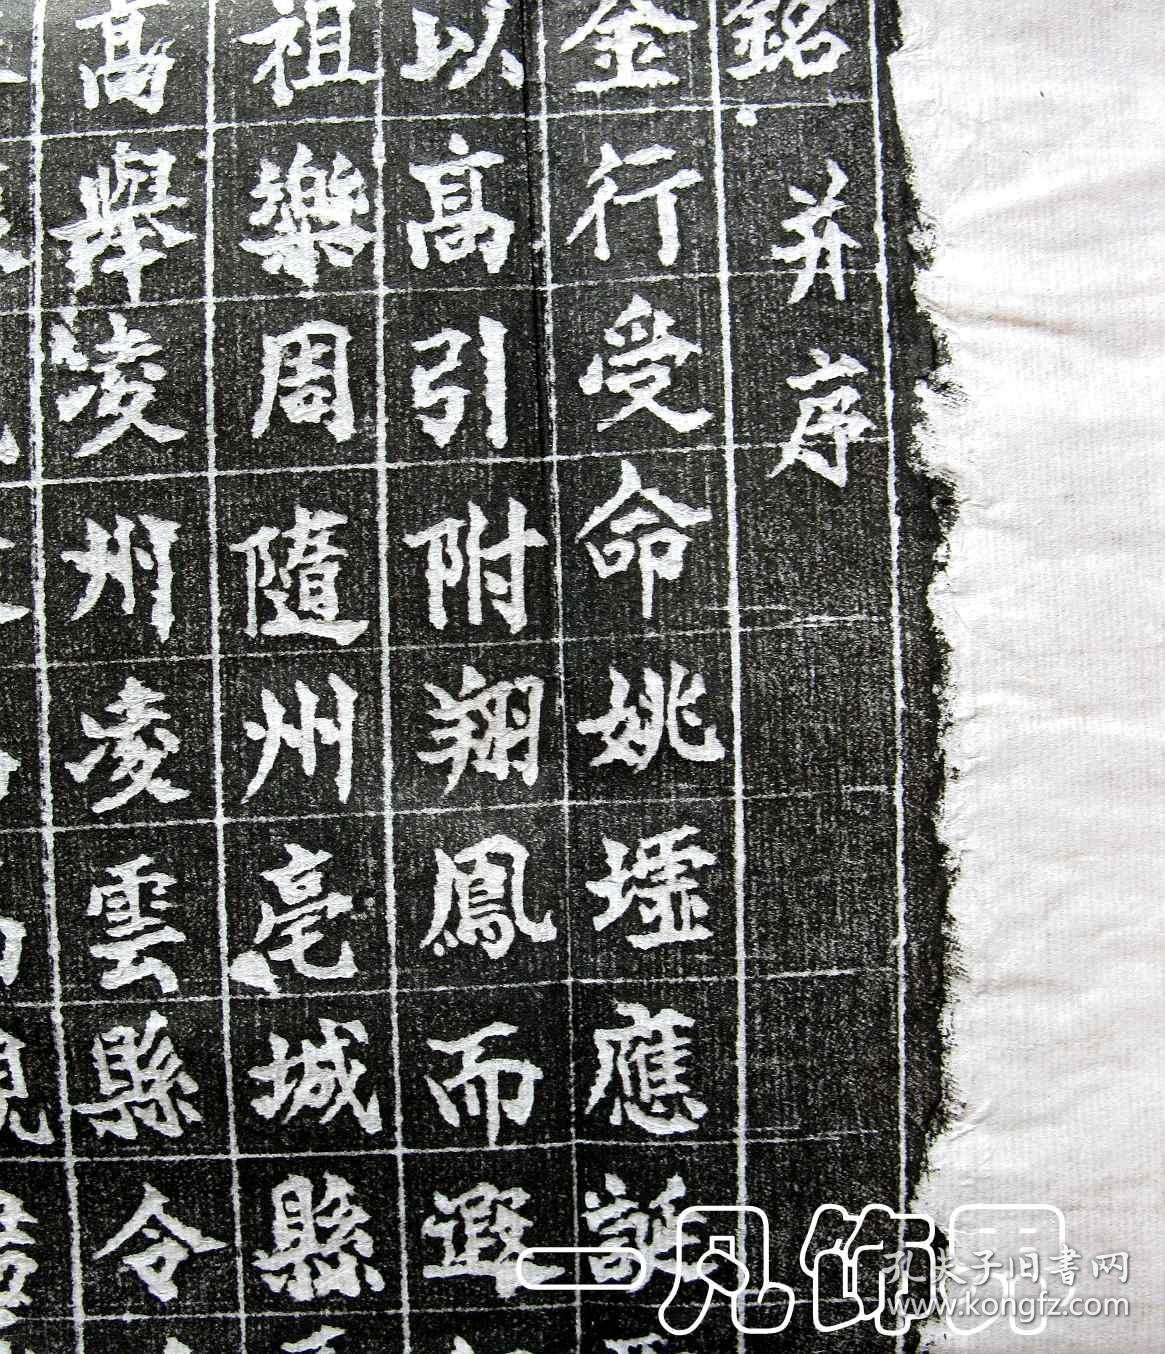 銘并序
金行受命姚墟應誕
以高引附翔鳳而遐
祖樂周隨州亳城縣
高舉淩州淩雲縣令
一凡饰界
孔夫子旧書网
www.kongfz.com